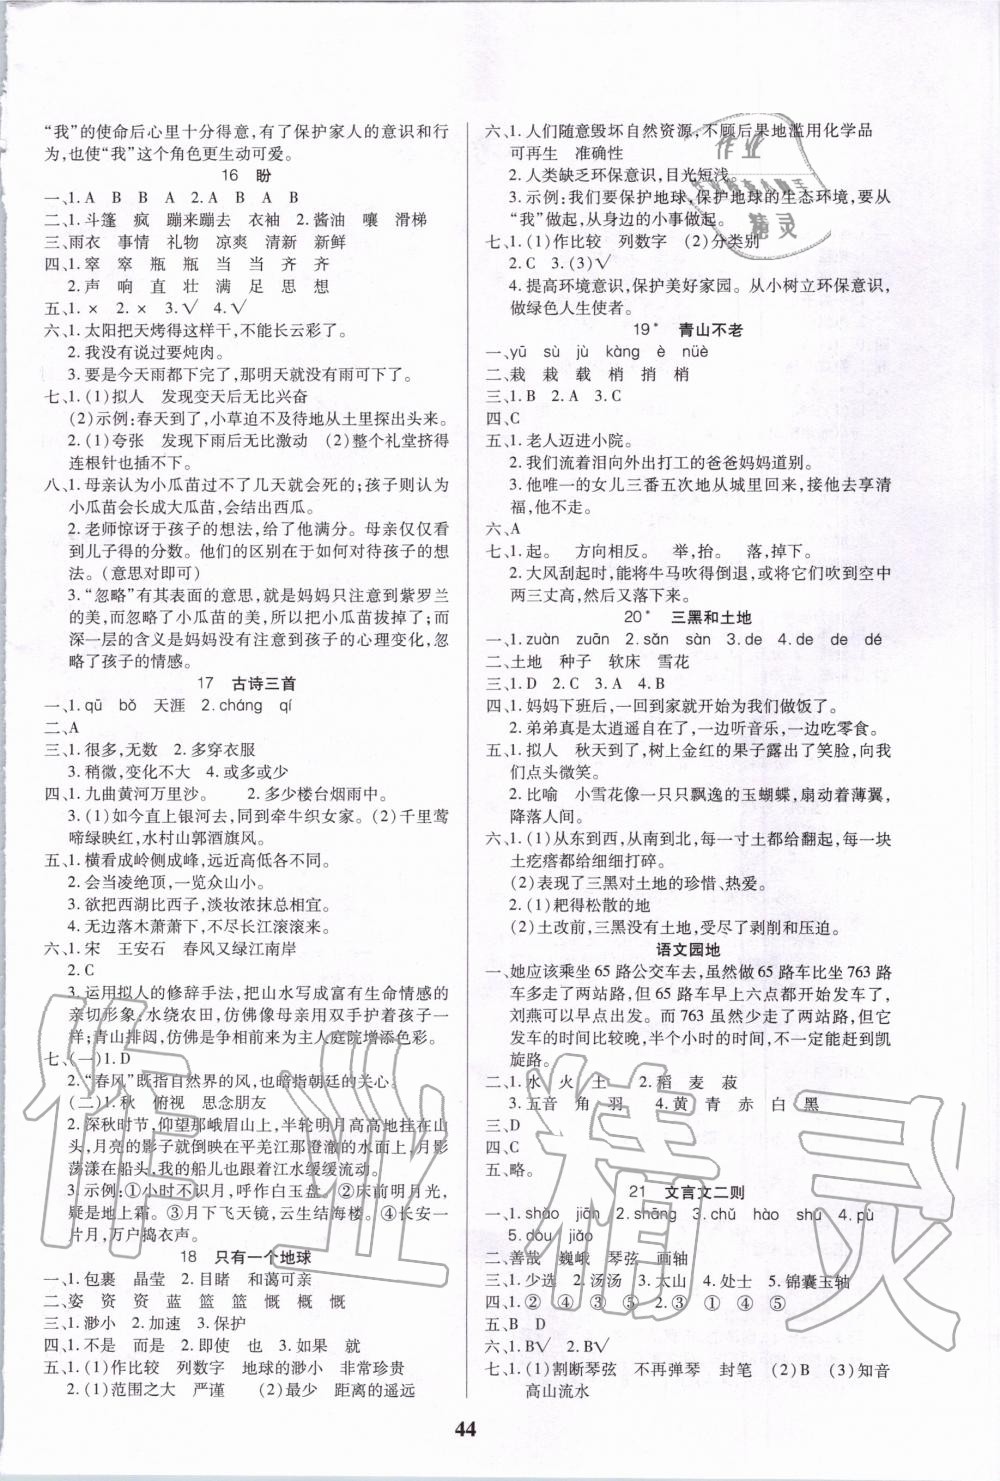 “我”的使命后心里十分得意,有了保护家人的意识和行
为,也使“我”这个角色更生动可爱。
16 盼
一、1. A B B A 2. A A B B
二、1. 斗篷 疯 蹦来蹦去 衣袖 2. 酱油 嚷 滑梯
三、雨衣 事情 礼物 凉爽 清新 新鲜
四、1. 窣 窣 瓶 瓶 当 当 齐 齐
2. 声 响 直 壮 满 足 思 想
五、1. × 2. × 3. √ 4. √
六、1. 太阳把天烤得这样干,不能长云彩了。
2. 我没有说过要炖肉。
3. 要是今天雨都下完了,那明天就没有雨可下了。
七、1. (1)拟人 发现变天后无比兴奋
(2)示例:春天到了,小草迫不及待地从土里探出头来。
2. (1)夸张 发现下雨后无比激动 (2)整个礼堂挤得
连根针也插不下。
八、1. 母亲认为小瓜苗过不了几天就会死的;孩子认为
小瓜苗会长成大瓜苗,会结出西瓜。
2. 老师惊讶于孩子的想法,给了他满分。母亲仅仅看
到儿子得的分数。他们的区别在于如何对待孩子的想
法。(意思对即可)
3. “忽略”有其表面的意思,就是妈妈只看到了紫罗兰
的美,而忽略了小瓜苗的美,所以把小瓜苗拔掉了;而
深一层的含义是妈妈没有注意到孩子的心理变化,忽
略了孩子的情感。
17 古诗三首
一、1. qū bǒ 天涯 2. cháng qí
二、A
三、1. 很多,无数 2. 多穿衣服
3. 稍微,变化不大 4. 或多或少
四、1. 九曲黄河万里沙。 2. 多少楼台烟雨中。
3. (1)如今直上银河去,同到牵牛织女家。 (2)千里莺
啼绿映红,水村山郭酒旗风。
五、1. 横看成岭侧成峰,远近高低各不同。
2. 会当凌绝顶,一览众山小。
3. 欲把西湖比西子,淡妆浓抹总相宜。
4. 无边落木萧萧下,不尽长江滚滚来。
六、1. 宋 王安石 春风又绿江南岸
2. C
3. 运用拟人的修辞手法,把山水写成富有情感的
亲切形象,水绕农田,仿佛像母亲用双手护着孩子一
样;青山排闼,仿佛是争相前来为主人庭院增添色彩。
七、(一)1. D
2. “春风”既指自然界的风,也暗指朝廷的关心。
(二)1. 秋 俯视 思念朋友
2. 深秋时节,仰望那峨眉山前,半轮明月高高地挂在
山头,月亮的影子就倒映在平羌江那澄澈的水面上,月影
荡漾在船头,我的船儿也随着江水缓缓流动。
3. 示例:①小时不识月,呼作白玉盘。②床前明月光,
疑是地上霜。③月下飞天镜,云生结海楼。④长安一
片月,万户捣衣声。
18 只有一个地球
一、1. 包裹 晶莹 2. 目睹 和蔼可亲
二、姿 资 资 蓝 篮 篮 慨 概 慨
三、1. 渺小 2. 加速 3. 保护
四、1. 不是 而是 2. 即 也 3. 如果 就
五、1. (1)作比较 列数字 地球的渺小 非常珍贵
2. (1)范围之大 严谨 (2)最少 距离的遥远
六、1. 人们随意毁坏自然资源,不顾后果地滥用化学品
可再生 准确性
2. 人类缺乏环保意识,目光短浅。
3. 示例:我们要保护地球,保护地球的生态环境,要从
“我”做起,从身边的小事做起。
七、1. (1)作比较 列数字 (2)分类别
2. C 3. (3)√
4. 提高环境意识,保护美好家园。从小树立环保意识,
做绿色人生使者。
19* 青山不老
一、yū sù jù kàng è nüè
二、栽 栽 载 梢 捎 梢
三、1. B 2. A 3. C
四、C
五、1. 老人迈进小院。
2. 我们流着泪向外出打工的爸爸妈妈道别。
3. 他唯一的女儿三番五次地从城里回来,接他去享清
福,他不走。
六、A
七、1. 起。 方向相反。 举,抬。 落,掉下。
2. 大风刮起时,能将牛马吹得倒退,或将它们吹到空中
两三丈高,然后又落下来。
20* 三黑和土地
一、1. zuàn zuān 2. sǎn sàn 3. de 4. de de dé
二、土地 种子 软床 雪花
三、1. D 2. C 3. A 4. B
四、1. 妈妈下班后,一回到家就开始为我们做饭了。
2. 弟弟真是太逍遥自在了,一边听音乐,一边吃零食。
五、1. 拟人 秋天到了,树上金红的果子露出了笑脸,向我
们点头微笑。
2. 比喻 小雪花像一只只飘逸的玉蝴蝶,扇动着薄翼,
降落人间。
六、1. (1)从东到西,从南到北,每一寸土都给翻起,每一块
土疙瘩都给细细打碎。
(2)表现了三黑对土地的珍惜、热爱。
2. (1)耙得松散的地
(2)土改前,三黑没有土地,受尽了剥削和压迫。
语文园地
一、她应该乘坐 65 路公交车去,虽然做 65 路车比坐 763 路
车多走了两站路,但是 65 路车早上六点多就开始发车了,
刘燕可以早点出发。而 763 虽然少走了两站路,但它
发车的时间比较晚,半个小时的时间,不一定能赶到凯
旋路。
二、1. 水 火 土 2. 稻 麦 菽
3. 五音 角 羽 4. 黄 青 赤 白 黑
三、D
四、C
五、略。
21 文言文二则
一、1. shào jiān 2. shāng 3. chǔ hào shū 4. pù
5. dòu jiǎo
二、善哉 巍峨 琴弦 画轴
三、1. 少选 2. 汤汤 3. 太山 4. 处士 5. 锦囊玉轴
四、1. ② ④ ③ ⑤ 2. ③ ① ④ ⑤
五、B D
六、1. B√ 2. B√
七、1. (1)割断琴弦 不再弹琴 封笔 (2)B (3)知音
高山流水
44
作业精灵